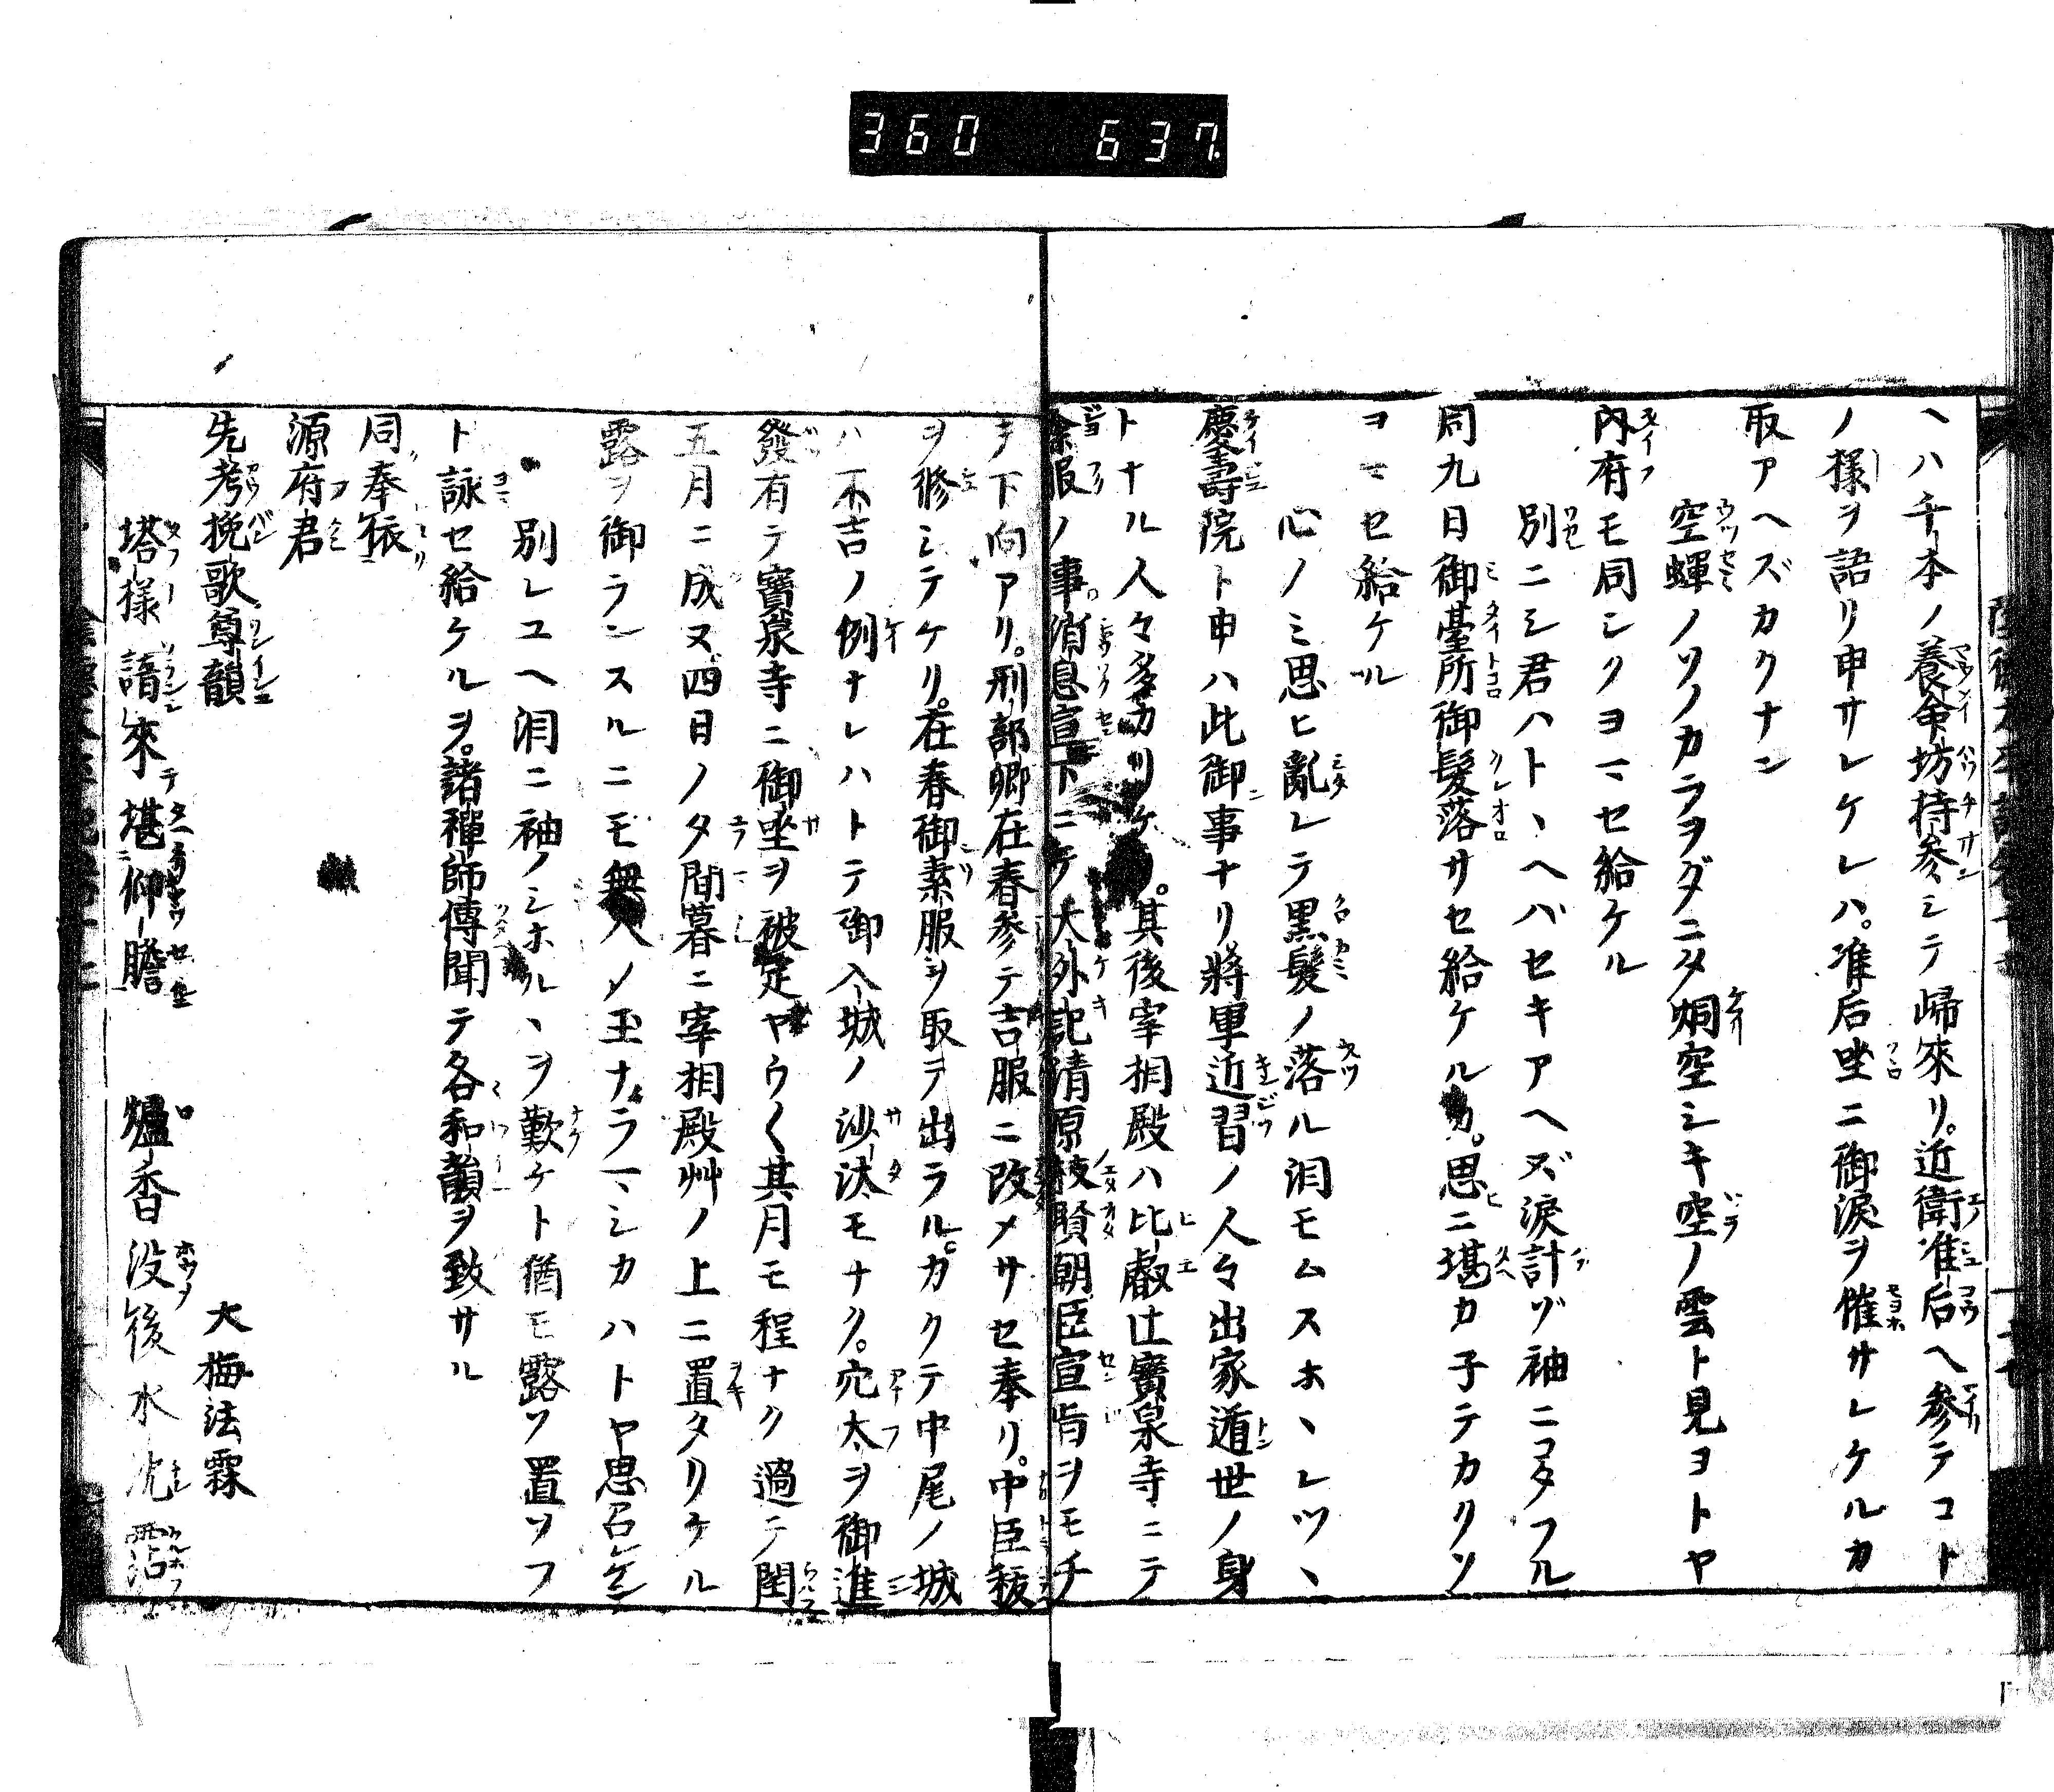 360 637
ヘハ千本ノ養命坊持参シテ歸來リ。近衛准后ヘ参テコト
ノ様ヲ語リ申サレケレハ。准后坐ニ御淚ヲ催サレケルカ
取アヘズカクナン
空蟬ノソノカラヲダニタ烟空シキ空ノ雲ト見ヨトヤ
內府モ同シクヨマセ給ケル
別ニシ君ハトヽヘバセキアヘズ淚計ヅ袖ニコタフル
同九日御臺所御髮落サセ給ケルカ。思ニ堪カ子テカクソ
ヨマセ給ケル
心ノミ思ヒ亂レテ黒髮ノ落ル泪モムスホヽレツヽ
慶壽院ト申ハ此御事ナリ將軍近習ノ人々出家遁世ノ身
トナル人々多カリケリ。其後宰相殿ハ比叡辻寳泉寺ニテ
除服ノ事。消息宣下ニテ大外記清原枝賢朝臣宣旨ヲモチ
テ下向アリ。刑部卿在春参テ吉服ニ改メサセ奉リ。中臣祓
ヲ修シテケリ。在春御素服ヲ取テ出ラル。カクテ中尾ノ城
ハ不吉ノ例ナレハトテ御入城ノ沙汰モナク。穴太ヲ御進
發有テ寳泉寺ニ御坐ヲ被定ヤウ〱其月モ程ナク過テ閏
五月ニ成ヌ四日ノタ間暮ニ宰相殿艸ノ上ニ置タリケル
露ヲ御ランスルニモ無人ノ玉ナラマシカハトヤ思召ケン
別レユヘ泪ニ袖ノシホルヽヲ歎ケト猶モ露ソ置ソフ
ト詠セ給ケルヲ。諸禪師傳聞テ各和韻ヲ致サル
同奉依
源府君
先考挽歌尊韻
大梅法霖
塔様諳來堪仰瞻 爐香没後水沈霑